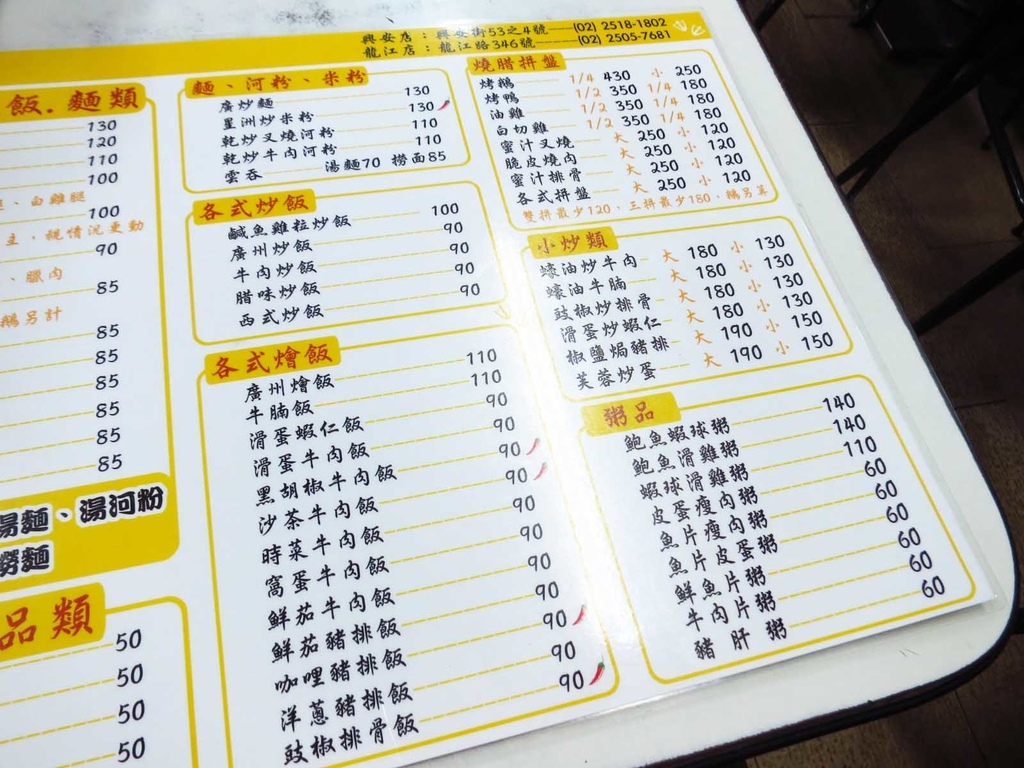 興安店：興安街53之4號——(02) 2518-1802
龍江店：龍江路346號——(02) 2505-7681
飯．麵類
130
120
110
100
、白雞腿
100
主，視情況更動
90
、臘肉
85
鵝另計
85
85
85
85
85
85
湯麵、湯河粉
撈麵
品類
50
50
50
50
麵、河粉、米粉
廣炒麵 130
星洲炒米粉 130
乾炒叉燒河粉 110
乾炒牛肉河粉 110
雲吞 湯麵70 撈面85
各式炒飯
鹹魚雞粒炒飯 100
廣州炒飯 90
牛肉炒飯 90
腊味炒飯 90
西式炒飯 90
各式燴飯
廣州燴飯 110
牛腩飯 110
滑蛋蝦仁飯 90
滑蛋牛肉飯 90
黑胡椒牛肉飯 90
沙茶牛肉飯 90
時菜牛肉飯 90
窩蛋牛肉飯 90
鮮茄牛肉飯 90
鮮茄豬排飯 90
咖哩豬排飯 90
洋蔥豬排飯 90
豉椒排骨飯 90
燒腊拼盤
烤鵝 1/4 430 小 250
烤鴨 1/2 350 1/4 180
油雞 1/2 350 1/4 180
白切雞 1/2 350 1/4 180
蜜汁叉燒 大 250 小 120
脆皮燒肉 大 250 小 120
蜜汁排骨 大 250 小 120
各式拼盤 大 250 小 120
雙拼最少120、三拼最少180、鵝另議
小炒類
蠔油炒牛肉 大 180 小 130
蠔油牛腩 大 180 小 130
豉椒炒排骨 大 180 小 130
滑蛋炒蝦仁 大 180 小 130
椒鹽焗豬排 大 190 小 150
芙蓉炒蛋 大 190 小 150
粥品
鮑魚蝦球粥 140
鮑魚滑雞粥 140
蝦球滑雞粥 110
皮蛋瘦肉粥 60
魚片瘦肉粥 60
魚片皮蛋粥 60
鮮魚片粥 60
牛肉片粥 60
豬肝粥 60